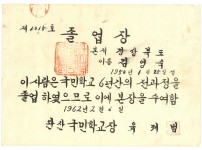 제1015호
졸업장
본적 경상북도
이름 김영숙
1950년 1월 25일생
이 사람은 국민학교 6년간의 전과정을
졸업하였으므로 이에 본장을 수여함
1962년 2월 6일
국민학교장